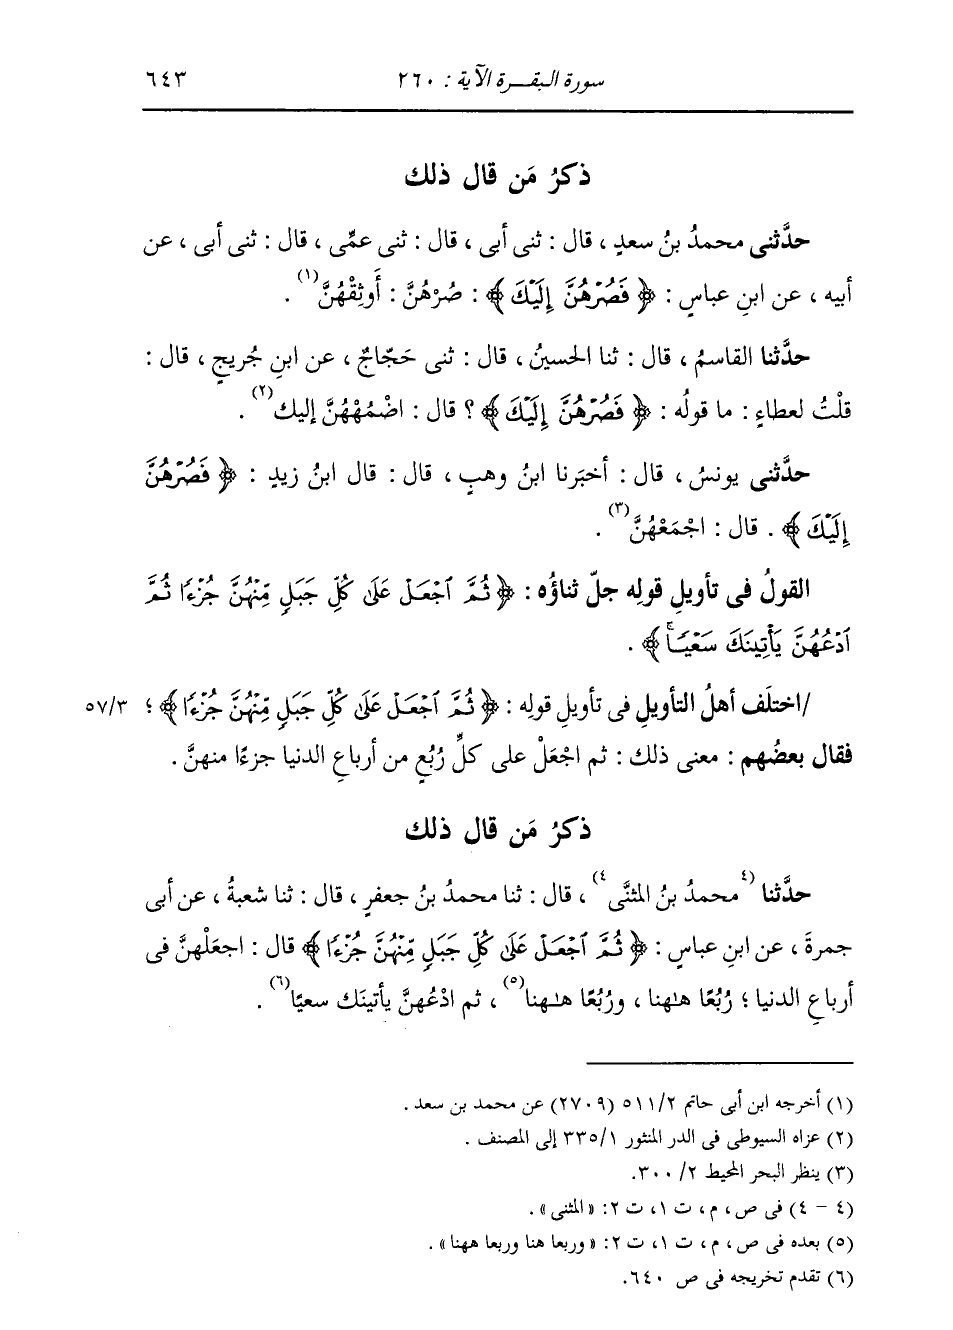 سورة البقرة الآية : ٢٦٠ ٦٤٣
ذكرُ مَن قال ذلك
حدَّثنى محمدُ بنُ سعدٍ ، قال : ثنى أبى ، قال : ثنى عمِّى ، قال : ثنى أبى ، عن
أبيه ، عن ابنِ عباسٍ : ﴿ فَصُرْهُنَّ إِلَيْكَ ﴾ : صُرْهُنَّ : أَوثِقْهُنَّ(١) .
حدَّثنا القاسمُ ، قال : ثنا الحسينُ ، قال : ثنى حَجّاجٌ ، عن ابنِ جُريجٍ ، قال :
قلْتُ لعطاءٍ : ما قولُه : ﴿ فَصُرْهُنَّ إِلَيْكَ ﴾ ؟ قال : اضْمُمْهُنَّ إليك(٢) .
حدَّثنى يونسُ ، قال : أخبَرنا ابنُ وهبٍ ، قال : قال ابنُ زيدٍ : ﴿ فَصُرْهُنَّ
إِلَيْكَ ﴾ . قال : اجْمَعْهُنَّ(٣) .
القولُ فى تأويلِ قولِه جلّ ثناؤُه : ﴿ ثُمَّ ٱجْعَلْ عَلَىٰ كُلِّ جَبَلٍ مِّنْهُنَّ جُزْءًا ثُمَّ
ٱدْعُهُنَّ يَأْتِينَكَ سَعْيًا ۚ ﴾ .
/اختلَف أهلُ التأويلِ فى تأويلِ قولِه : ﴿ ثُمَّ ٱجْعَلْ عَلَىٰ كُلِّ جَبَلٍ مِّنْهُنَّ جُزْءًا ﴾ ؛ ٥٧/٣
فقال بعضُهم : معنى ذلك : ثم اجْعَلْ على كلِّ رُبُعٍ من أرباعِ الدنيا جزءًا منهنَّ .
ذكرُ مَن قال ذلك
حدَّثنا (٤محمدُ بنُ المثنَّى٤) ، قال : ثنا محمدُ بنُ جعفرٍ ، قال : ثنا شعبةُ ، عن أبى
جمرةَ ، عن ابنِ عباسٍ : ﴿ ثُمَّ ٱجْعَلْ عَلَىٰ كُلِّ جَبَلٍ مِّنْهُنَّ جُزْءًا ﴾ قال : اجعَلْهنَّ فى
أرباعِ الدنيا ؛ رُبُعًا هـٰهنا ، ورُبُعًا هـٰهنا(٥) ، ثم ادْعُهنَّ يأتينَك سعيًا(٦) .
(١) أخرجه ابن أبى حاتم ٥١١/٢ (٢٧٠٩) عن محمد بن سعد .
(٢) عزاه السيوطى فى الدر المنثور ٣٣٥/١ إلى المصنف .
(٣) ينظر البحر المحيط ٢/ ٣٠٠.
(٤ - ٤) فى ص، م، ت ١، ت ٢: «المثنى» .
(٥) بعده فى ص، م، ت ١، ت ٢: «وربعا هنا وربعا ههنا» .
(٦) تقدم تخريجه فى ص ٦٤٠.